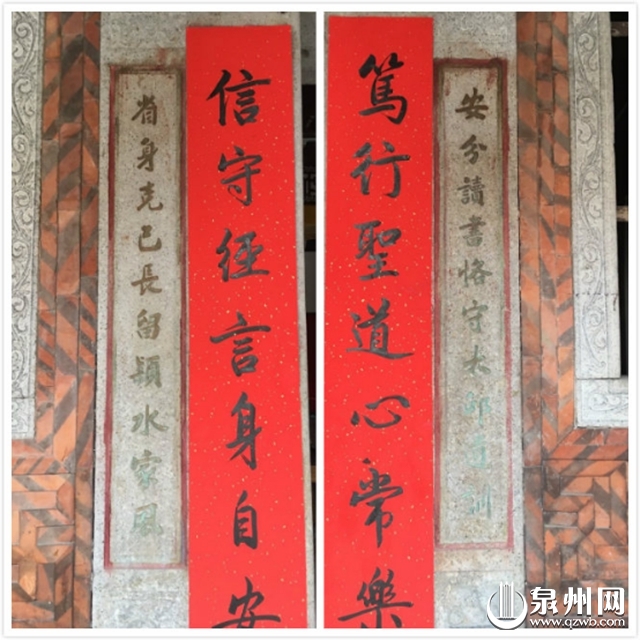 安分讀書恪守太邱遺訓
篤行聖道心常樂
信守經言身自安
省身克己長留潁水家風
泉州网
www.qzwb.com